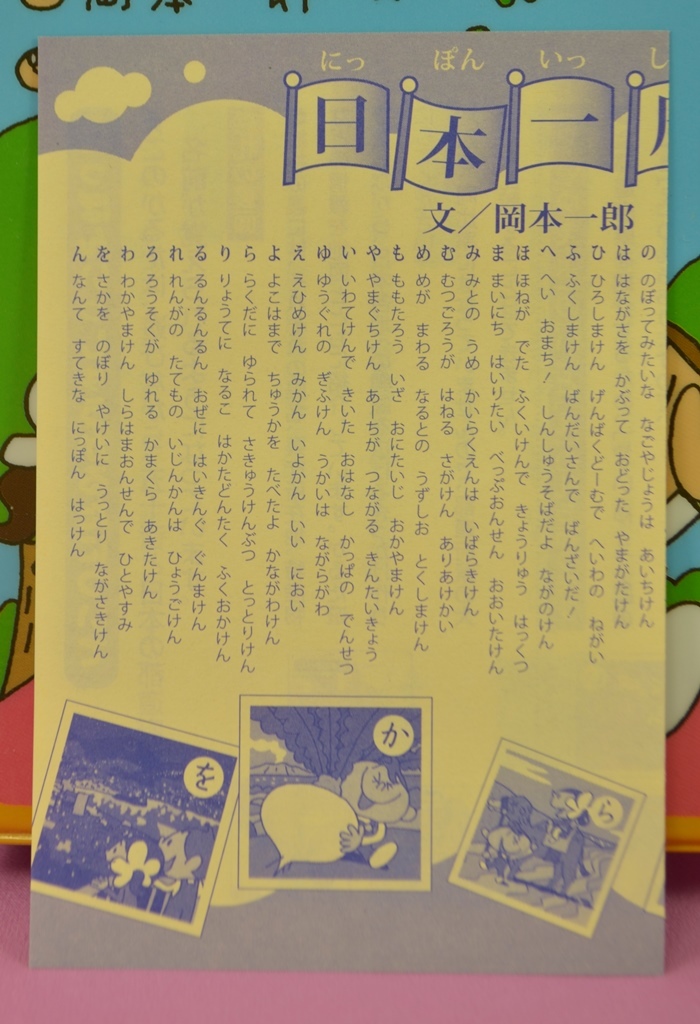 にっ ぽん いっ し
日本一
文／岡本一郎
の のぼってみたいな なごやじょうは あいちけん
は はながさを かぶって おどった やまがたけん
ひ ひろしまけん げんばくどーむで へいわの ねがい
ふ ふくしまけん ばんだいさんで ばんざいだ！
へ へい おまち！ しんしゅうそばだよ ながのけん
ほ ほねが でた ふくいけんで きょうりゅう はっくつ
ま まいにち はいりたい べっぷおんせん おおいたけん
み みとの うめ かいらくえんは いばらきけん
む むつごろうが はねる さがけん ありあけかい
め めが まわる なるとの うずしお とくしまけん
も ももたろう いざ おにたいじ おかやまけん
や やまぐちけん あーちが つながる きんたいきょう
い いわてけんで きいた おはなし かっぱの でんせつ
ゆ ゆうぐれの ぎふけん うかいは ながらがわ
え えひめけん みかん いよかん いい におい
よ よこはまで ちゅうかを たべたよ かながわけん
ら らくだに ゆられて さきゅうけんぶつ とっとりけん
り りょうてに なるこ はかたどんたく ふくおかけん
る るんるんるん おぜに はいきんぐ ぐんまけん
れ れんがの たてもの いじんかんは ひょうごけん
ろ ろうそくが ゆれる かまくら あきたけん
わ わかやまけん しらはまおんせんで ひとやすみ
を さかを のぼり やけいに うっとり ながさきけん
ん なんて すてきな にっぽん はっけん
を
か
ら